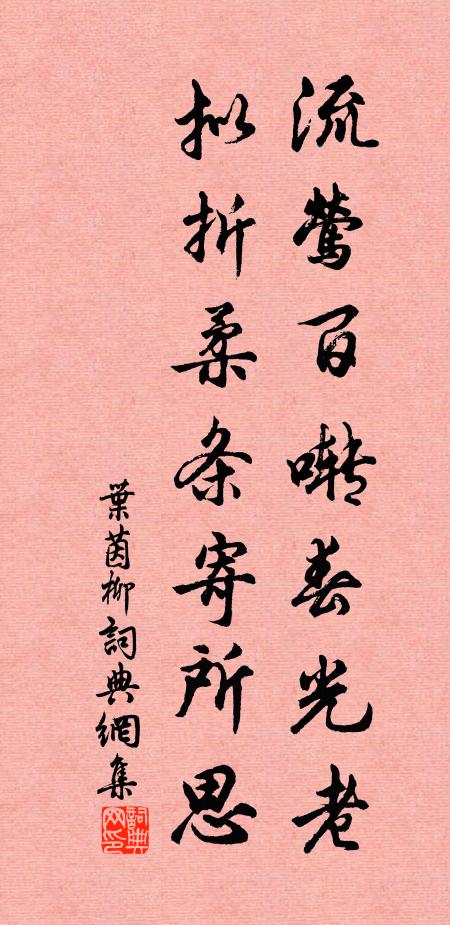 流莺百啭春光老
拟折柔条寄所思
葉茵柳詞典網集
詞典网印